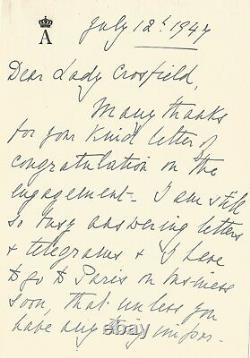 A
July 12ᵗ 1947
Dear Lady Crosfield,
Many thanks
for your kind letter of
congratulation on the
engagement - I am still
so busy answering letters
& telegrams & I have
to go to Paris on business
soon, that unless you
have anything impor-